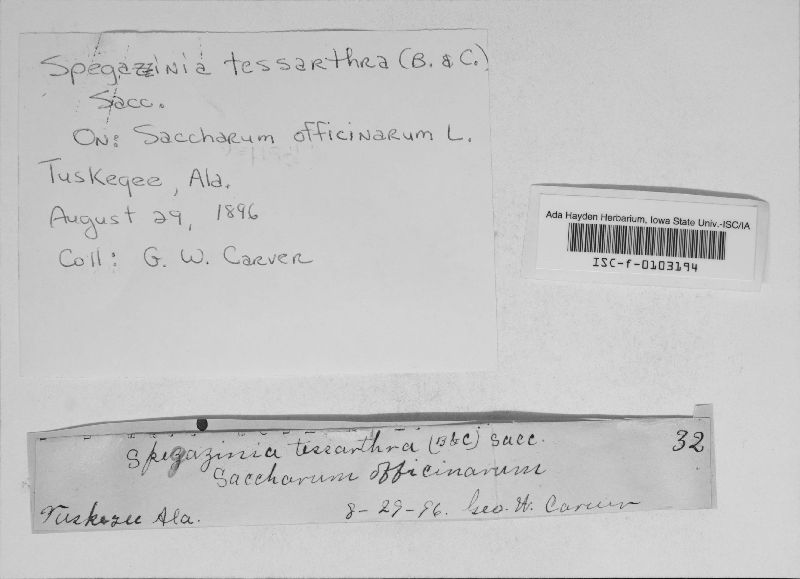 Spegazzinia tessarthra (B. & C.)
Sacc.
ON: Saccharum officinarum L.
Tuskegee, Ala.
August 29, 1896
Coll: G. W. Carver
Ada Hayden Herbarium, Iowa State Univ.-ISC/IA
ISC-f-0103194
Spegazinia tessarthra (B&C) Sacc. 32
Saccharum officinarum
Tuskegee Ala. 8-29-96. Geo. W. Carver